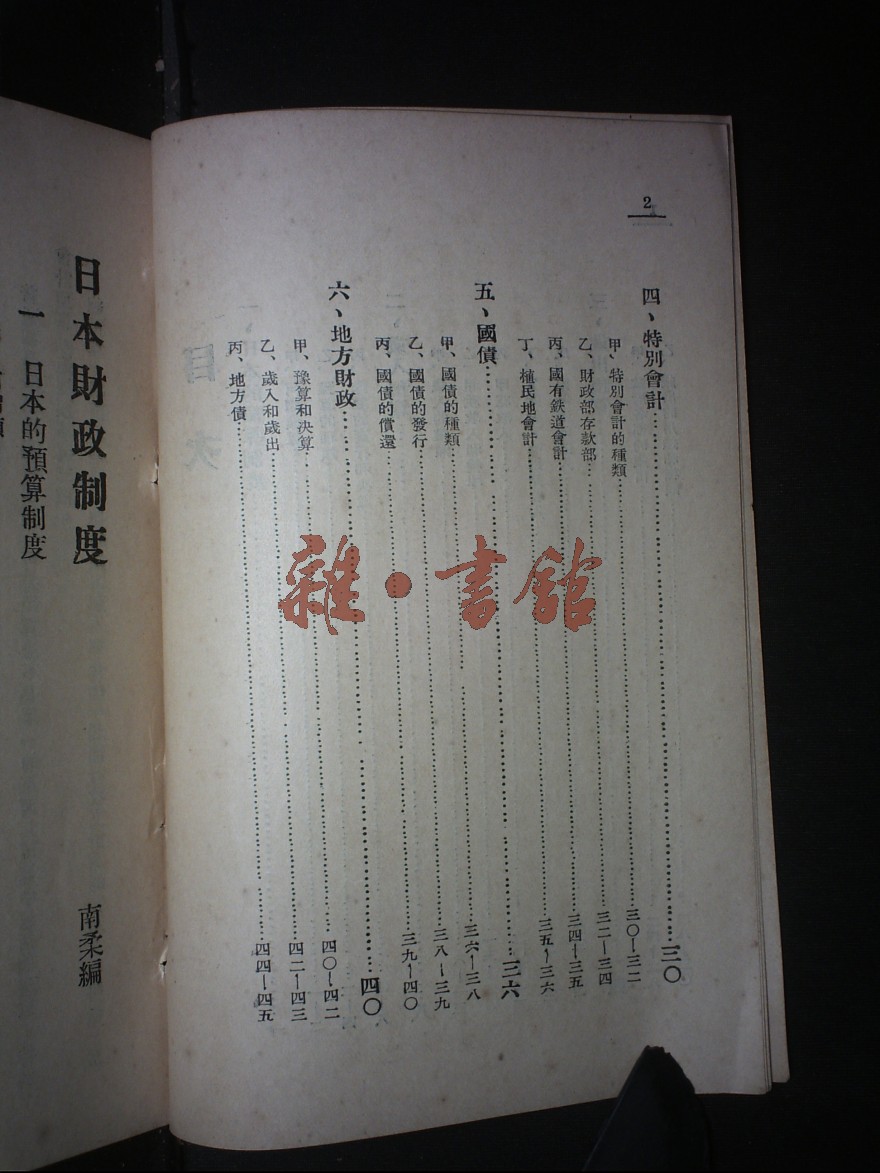 2
四、特別會計……三〇
甲、特別會計的種類……三〇—三二
乙、財政部存款部……三二—三四
丙、國有鉄道會計……三四—三五
丁、植民地會計……三五—三六
五、國債……三六
甲、國債的種類……三六—三八
乙、國債的發行……三八—三九
丙、國債的償還……三九—四〇
六、地方財政……四〇
甲、豫算和決算……四〇—四二
乙、歲入和歲出……四二—四三
丙、地方債……四四—四五
日本財政制度
南柔編
一 日本的預算制度
雜·書館